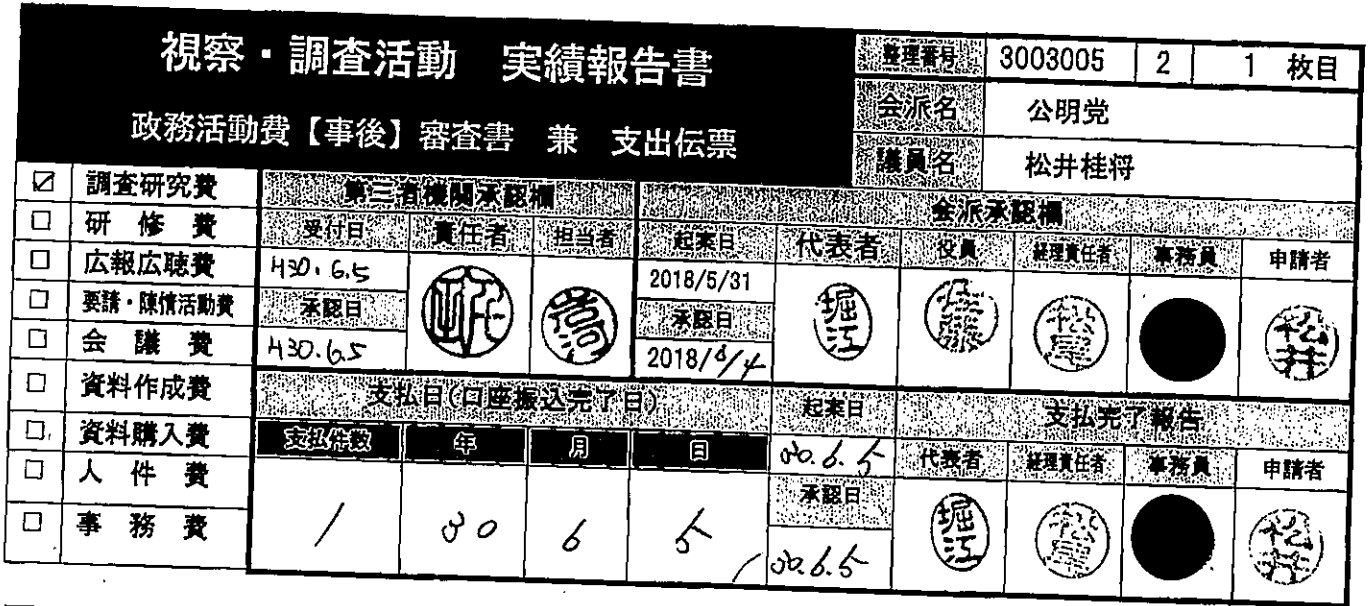 視察・調査活動 実績報告書
政務活動費【事後】審査書 兼 支出伝票
整理番号 3003005 2 1 枚目
会派名 公明党
議員名 松井桂将
☑ 調査研究費
□ 研修費
□ 広報広聴費
□ 要請・陳情活動費
□ 会議費
□ 資料作成費
□ 資料購入費
□ 人件費
□ 事務費
第三者機関承認欄
受付日 責任者 担当者
H30.6.5
承認日
H30.6.5
会派承認欄
起案日 代表者 役員 経理責任者 事務員 申請者
2018/5/31
堀江 松尾 松井
承認日
2018/6/4
支払日(口座振込完了日)
支払件数 年 月 日
1 30 6 5
起案日
30.6.5
承認日
30.6.5
支払完了報告
代表者 経理責任者 事務員 申請者
堀江 松尾 松井